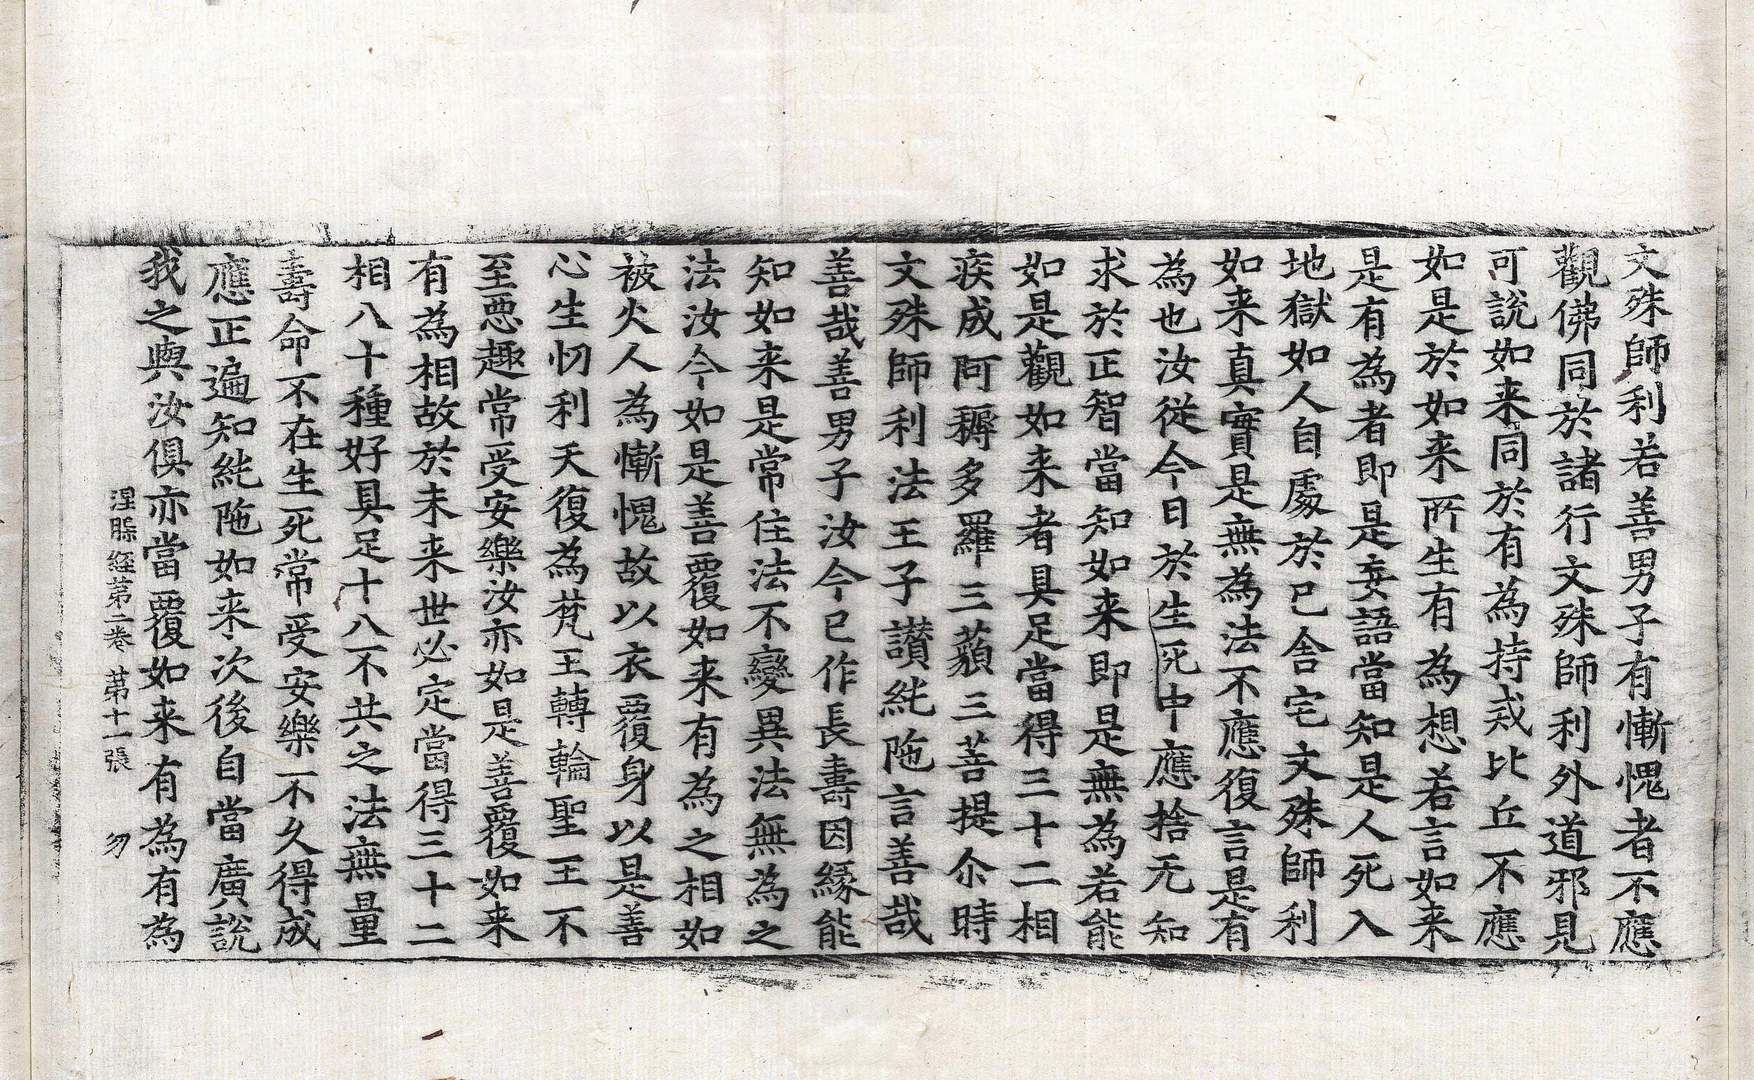 文殊師利若善男子有慚愧者不應
觀佛同於諸行文殊師利外道邪見
可說如来同於有為持戒比丘不應
如是於如来所生有為想若言如来
是有為者即是妄語當知是人死入
地獄如人自處於已舍宅文殊師利
如来真實是無為法不應復言是有
為也汝從今日於生死中應捨无知
求於正智當知如来即是無為若能
如是觀如来者具足當得三十二相
疾成阿耨多羅三藐三菩提尒時
文殊師利法王子讃純陁言善哉
善哉善男子汝今已作長壽因緣能
知如来是常住法不變異法無為之
法汝今如是善覆如来有為之相如
被火人為慚愧故以衣覆身以是善
心生忉利天復為梵王轉輪聖王不
至悪趣常受安樂汝亦如是善覆如来
有為相故於未来世必定當得三十二
相八十種好具足十八不共之法無量
壽命不在生死常受安樂不久得成
應正遍知純陁如来次後自當廣說
我之與汝俱亦當覆如来有為有為
涅槃經第二卷 第十一張 勿